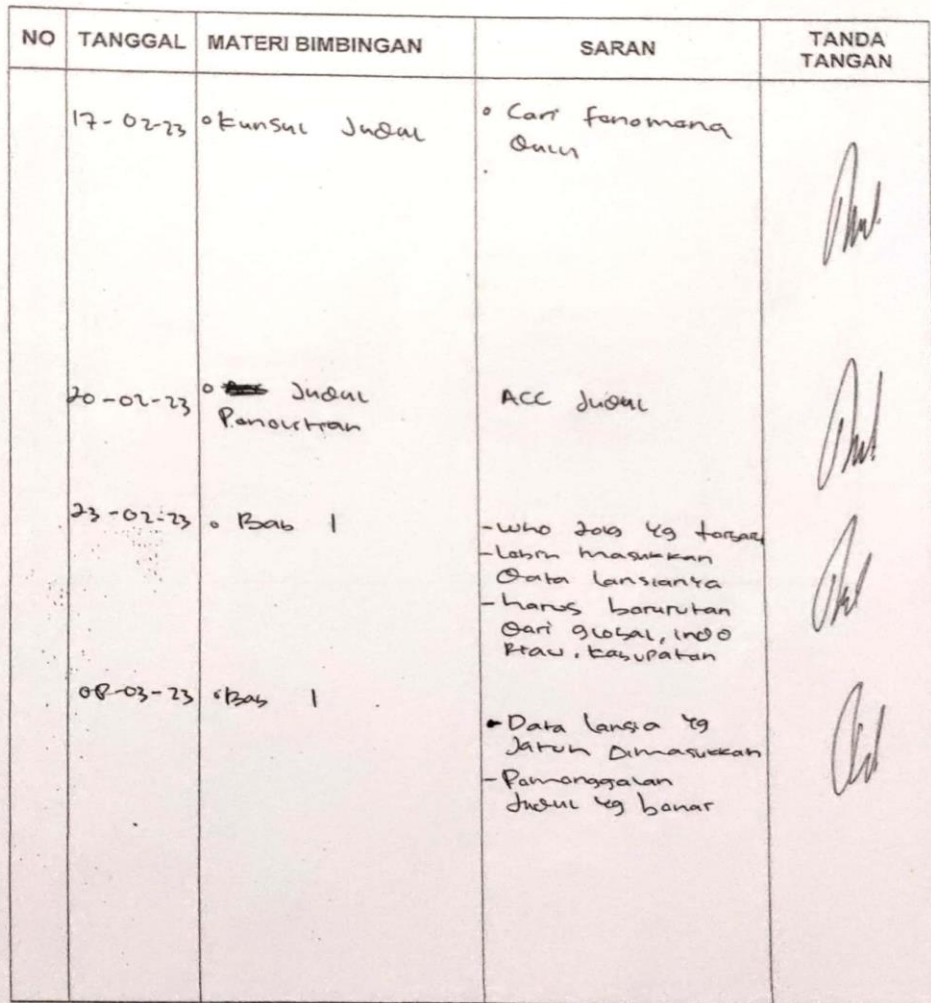 NO TANGGAL MATERI BIMBINGAN SARAN TANDA TANGAN
17-02-23 Kunsul Judul Cari fenomena
dulu
20-02-23 Judul ACC Judul
Penelitian
23-02-23 Bab 1 - WHO yg
- Lebih masukkan
data lansianya
- harus berurutan
dari global, indo
Riau, kabupaten
08-03-23 Bab 1
- Data lansia yg
Jatuh Dimasukkan
- Pemenggalan
Judul yg benar